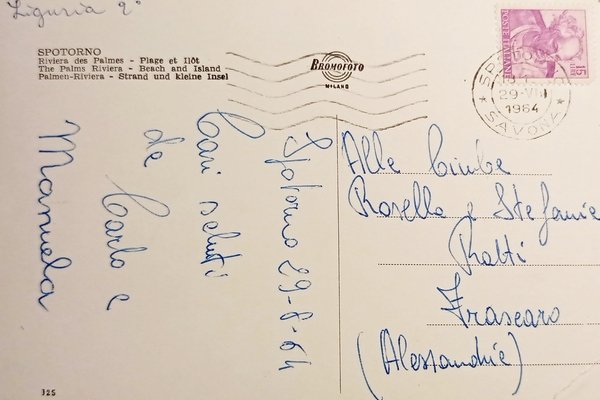 Liguria 2°
SPOTORNO
Riviera des Palmes - Plage et Ilôt
The Palms Riviera - Beach and Island
Palmen-Riviera - Strand und kleine Insel
BROMOFOTO
MILANO
POSTE ITALIANE
15
SPOTORNO
29-VIII
1964
SAVONA
Spotorno 29-8-64
Cari saluti
da Carlo e
Manuela
Alle Bimbe
Rosella e Stefania
Ratti
Frascaro
(Alessandria)
325